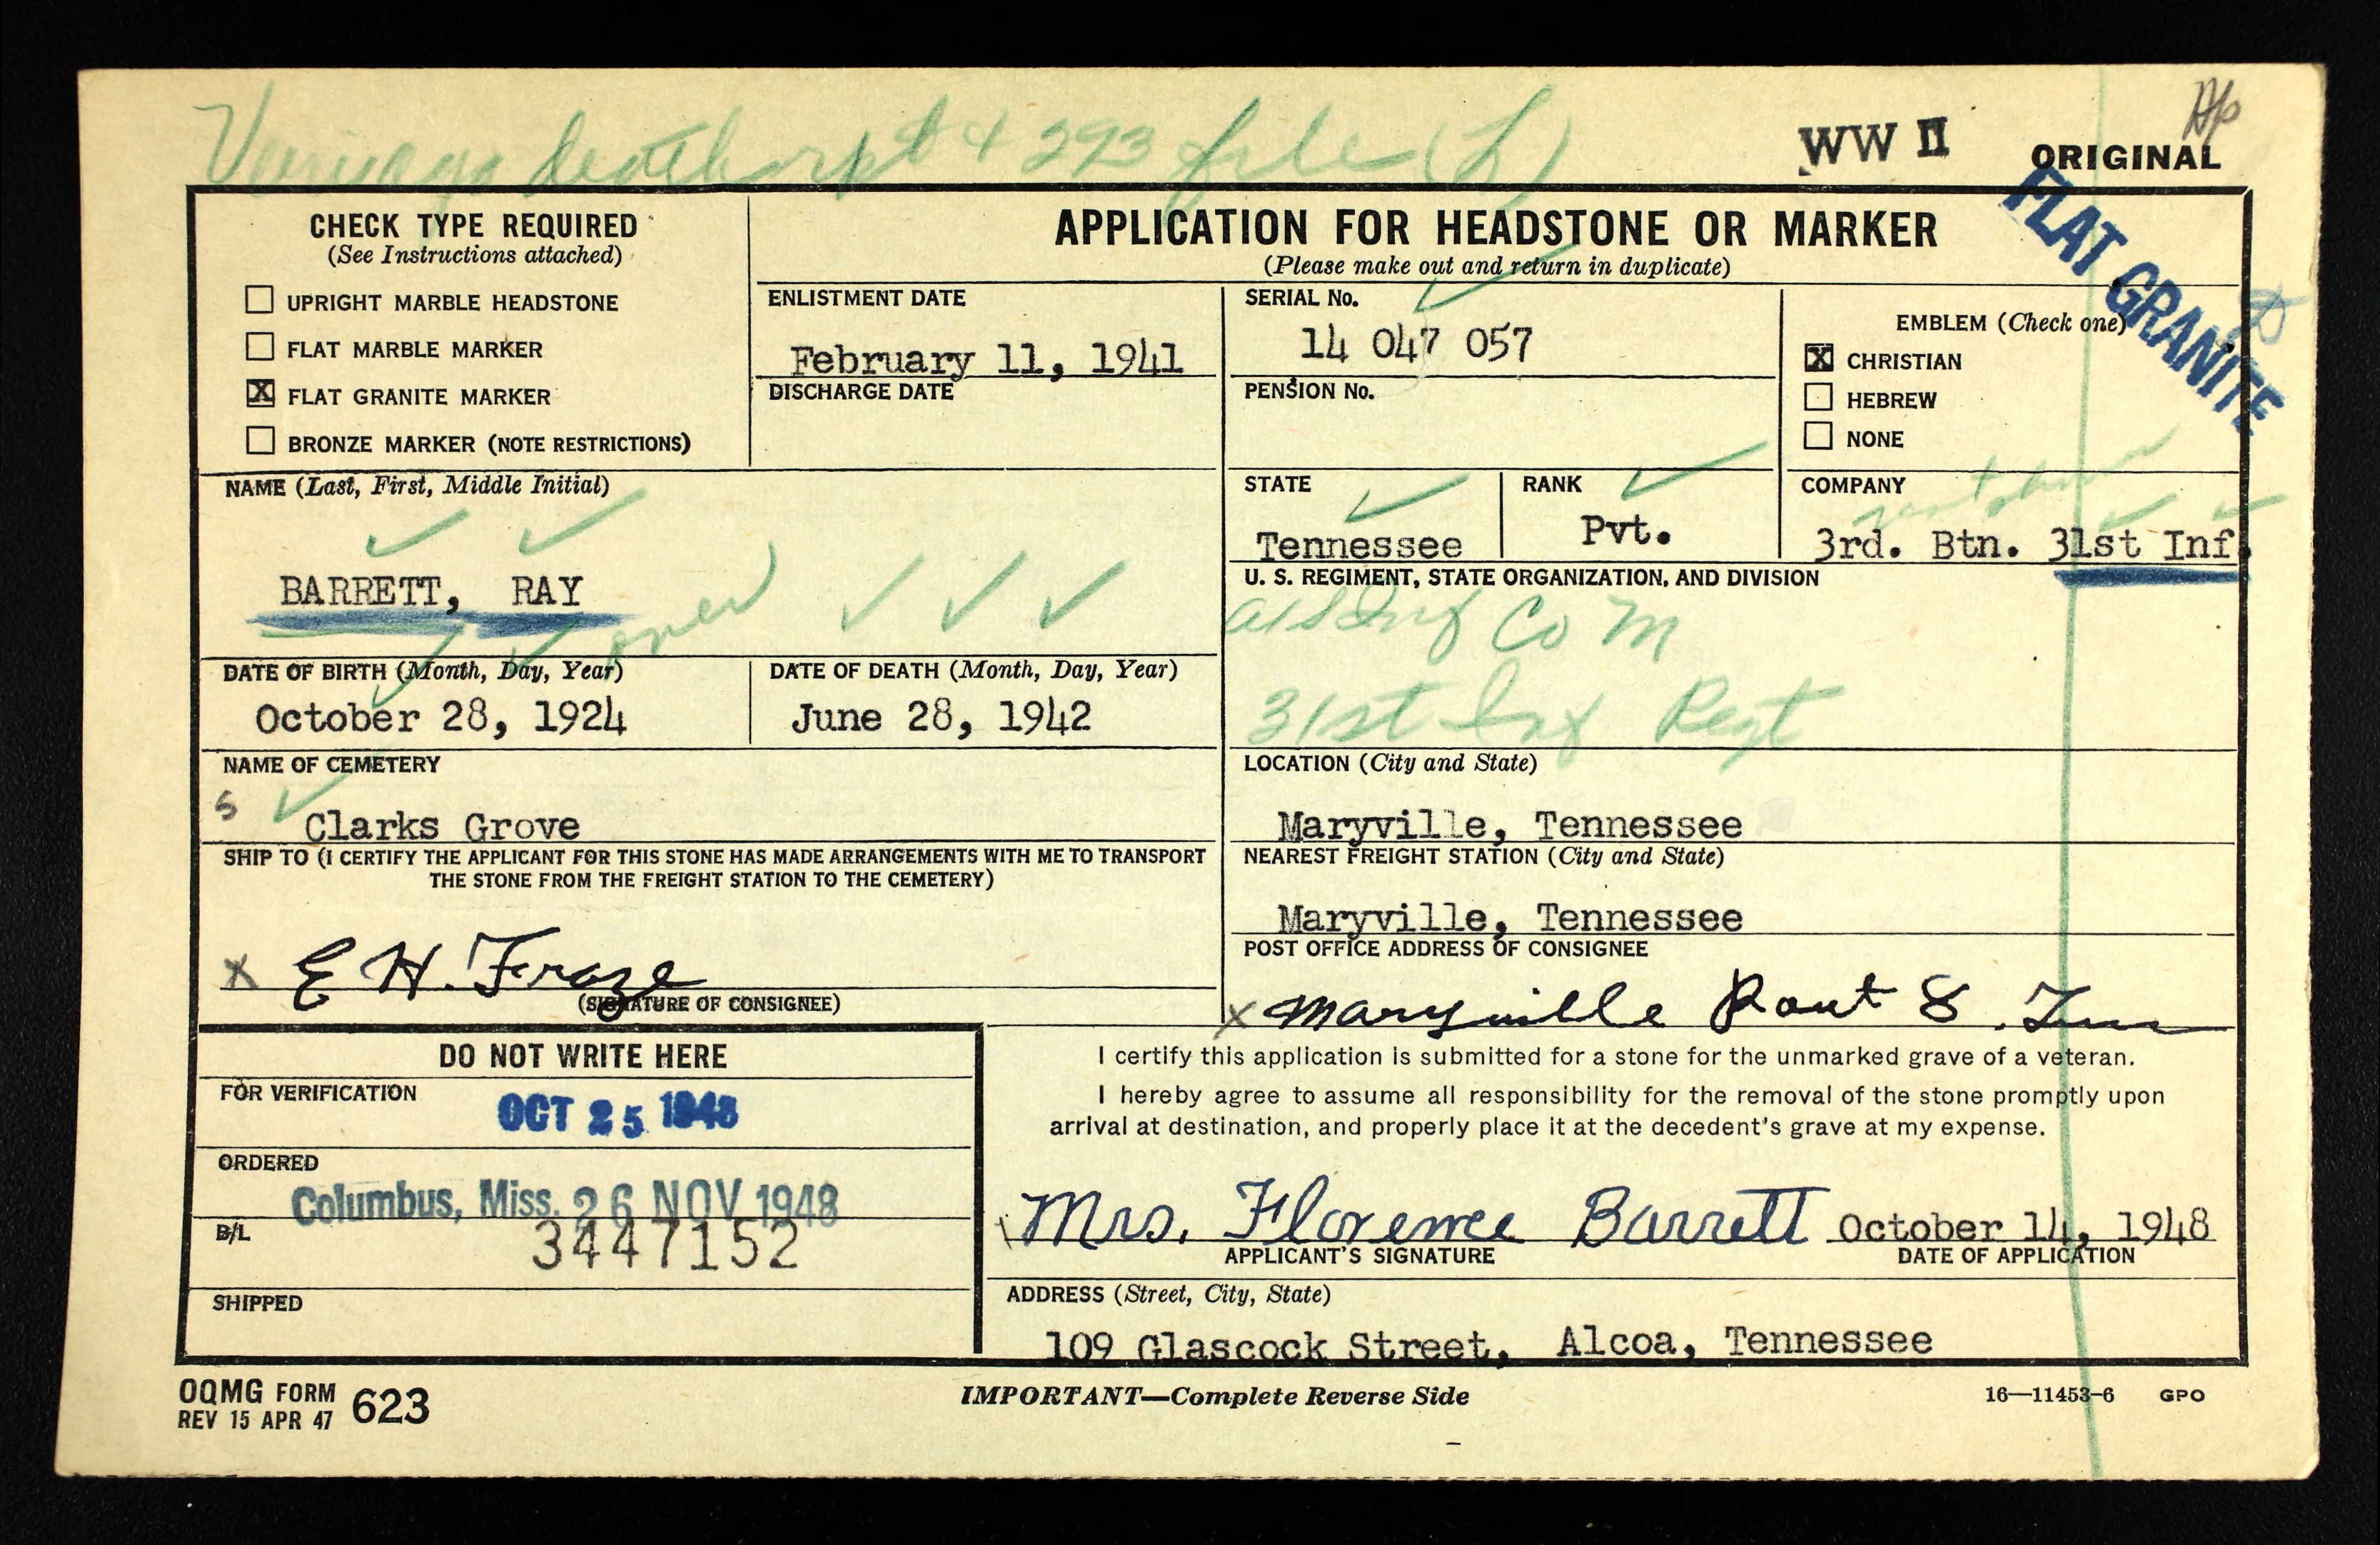 + 293 file (L)
WW II
ORIGINAL
FLAT GRANITE
CHECK TYPE REQUIRED
(See Instructions attached)
☐ UPRIGHT MARBLE HEADSTONE
☐ FLAT MARBLE MARKER
☒ FLAT GRANITE MARKER
☐ BRONZE MARKER (NOTE RESTRICTIONS)
APPLICATION FOR HEADSTONE OR MARKER
(Please make out and return in duplicate)
ENLISTMENT DATE
February 11, 1941
DISCHARGE DATE
SERIAL No.
14 047 057
PENSION No.
EMBLEM (Check one)
☒ CHRISTIAN
☐ HEBREW
☐ NONE
NAME (Last, First, Middle Initial)
BARRETT, RAY
STATE
Tennessee
RANK
Pvt.
COMPANY
3rd. Btn. 31st Inf.
U. S. REGIMENT, STATE ORGANIZATION, AND DIVISION
Co M
31st Inf Regt
DATE OF BIRTH (Month, Day, Year)
October 28, 1924
DATE OF DEATH (Month, Day, Year)
June 28, 1942
NAME OF CEMETERY
S Clarks Grove
LOCATION (City and State)
Maryville, Tennessee
SHIP TO (I CERTIFY THE APPLICANT FOR THIS STONE HAS MADE ARRANGEMENTS WITH ME TO TRANSPORT
THE STONE FROM THE FREIGHT STATION TO THE CEMETERY)
NEAREST FREIGHT STATION (City and State)
Maryville, Tennessee
X E H. Fraze
(SIGNATURE OF CONSIGNEE)
POST OFFICE ADDRESS OF CONSIGNEE
X Maryville Rout 8. Tenn
DO NOT WRITE HERE
FOR VERIFICATION
OCT 25 1948
ORDERED
Columbus, Miss. 26 NOV 1948
B/L
3447152
SHIPPED
I certify this application is submitted for a stone for the unmarked grave of a veteran.
I hereby agree to assume all responsibility for the removal of the stone promptly upon
arrival at destination, and properly place it at the decedent's grave at my expense.
Mrs. Florence Barrett October 14, 1948
APPLICANT'S SIGNATURE
DATE OF APPLICATION
ADDRESS (Street, City, State)
109 Glascock Street, Alcoa, Tennessee
OQMG FORM 623
REV 15 APR 47
IMPORTANT—Complete Reverse Side
16—11453-6 GPO